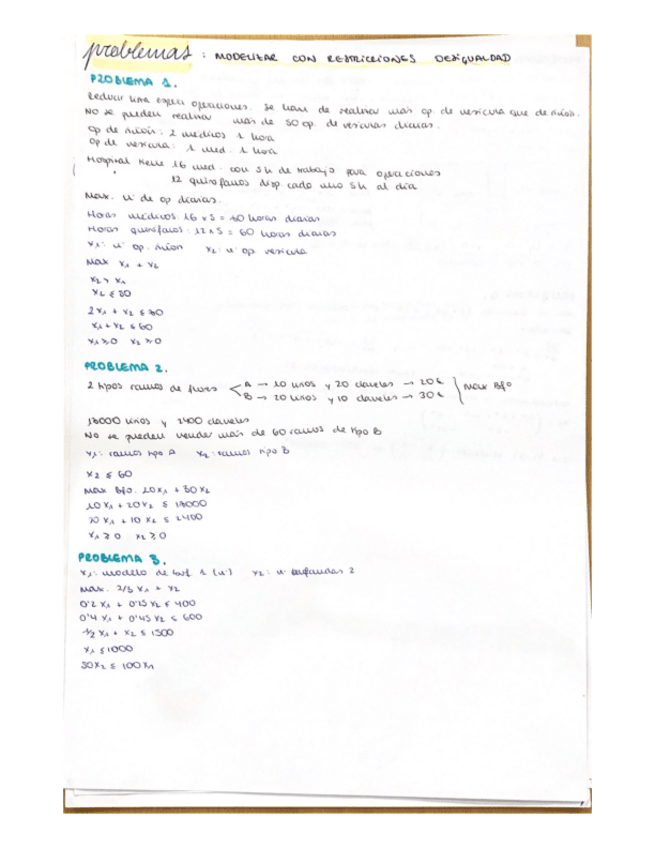 problemas: MODELIZAR CON RESTRICCIONES DESIGUALDAD
PROBLEMA 1.
Reducir lista espera operaciones. Se han de realizar más op. de vesícula que de riñón.
No se pueden realizar más de 50 op. de vesículas diarias.
Op de riñón: 2 médicos 1 hora
Op de vesícula: 1 med. 1 hora
Hospital tiene 16 med. con 5h de trabajo para operaciones
12 quirófanos disp cada uno 5h al día
Max. nº de op diarias.
Horas médicos: 16 x 5 = 80 horas diarias
Horas quirófanos: 12 x 5 = 60 horas diarias
x₁: nº op. riñón x₂: nº op vesícula
Max x₁ + x₂
x₂ > x₁
x₂ ≤ 50
2x₁ + x₂ ≤ 80
x₁ + x₂ ≤ 60
x₁ ≥ 0 x₂ ≥ 0
PROBLEMA 2.
2 tipos ramos de flores A → 10 lirios y 20 claveles → 20€
B → 20 lirios y 10 claveles → 30€ Max Bfo
18000 lirios y 2400 claveles
No se pueden vender más de 60 ramos de tipo B
x₁: ramos tipo A x₂: ramos tipo B
x₂ ≤ 60
Max Bfo. 20x₁ + 30x₂
10x₁ + 20x₂ ≤ 18000
20x₁ + 10x₂ ≤ 2400
x₁ ≥ 0 x₂ ≥ 0
PROBLEMA 3.
x₁: modelo de 1 (nº) x₂: nº bufandas 2
Max. 2/3 x₁ + x₂
0'2 x₁ + 0'25 x₂ ≤ 400
0'4 x₁ + 0'45 x₂ ≤ 600
1/2 x₁ + x₂ ≤ 1500
x₁ ≤ 1000
50x₂ ≤ 100x₁